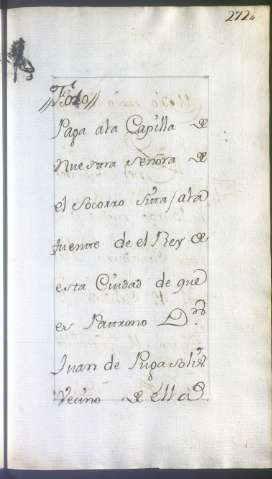 272
Foro
Paga ala Capilla de
Nuestra señora de
el Socorro sita / ala
fuente de el Rey de
esta Ciudad de que
es Patrono D.n
Juan de Puga
Vecino de ella